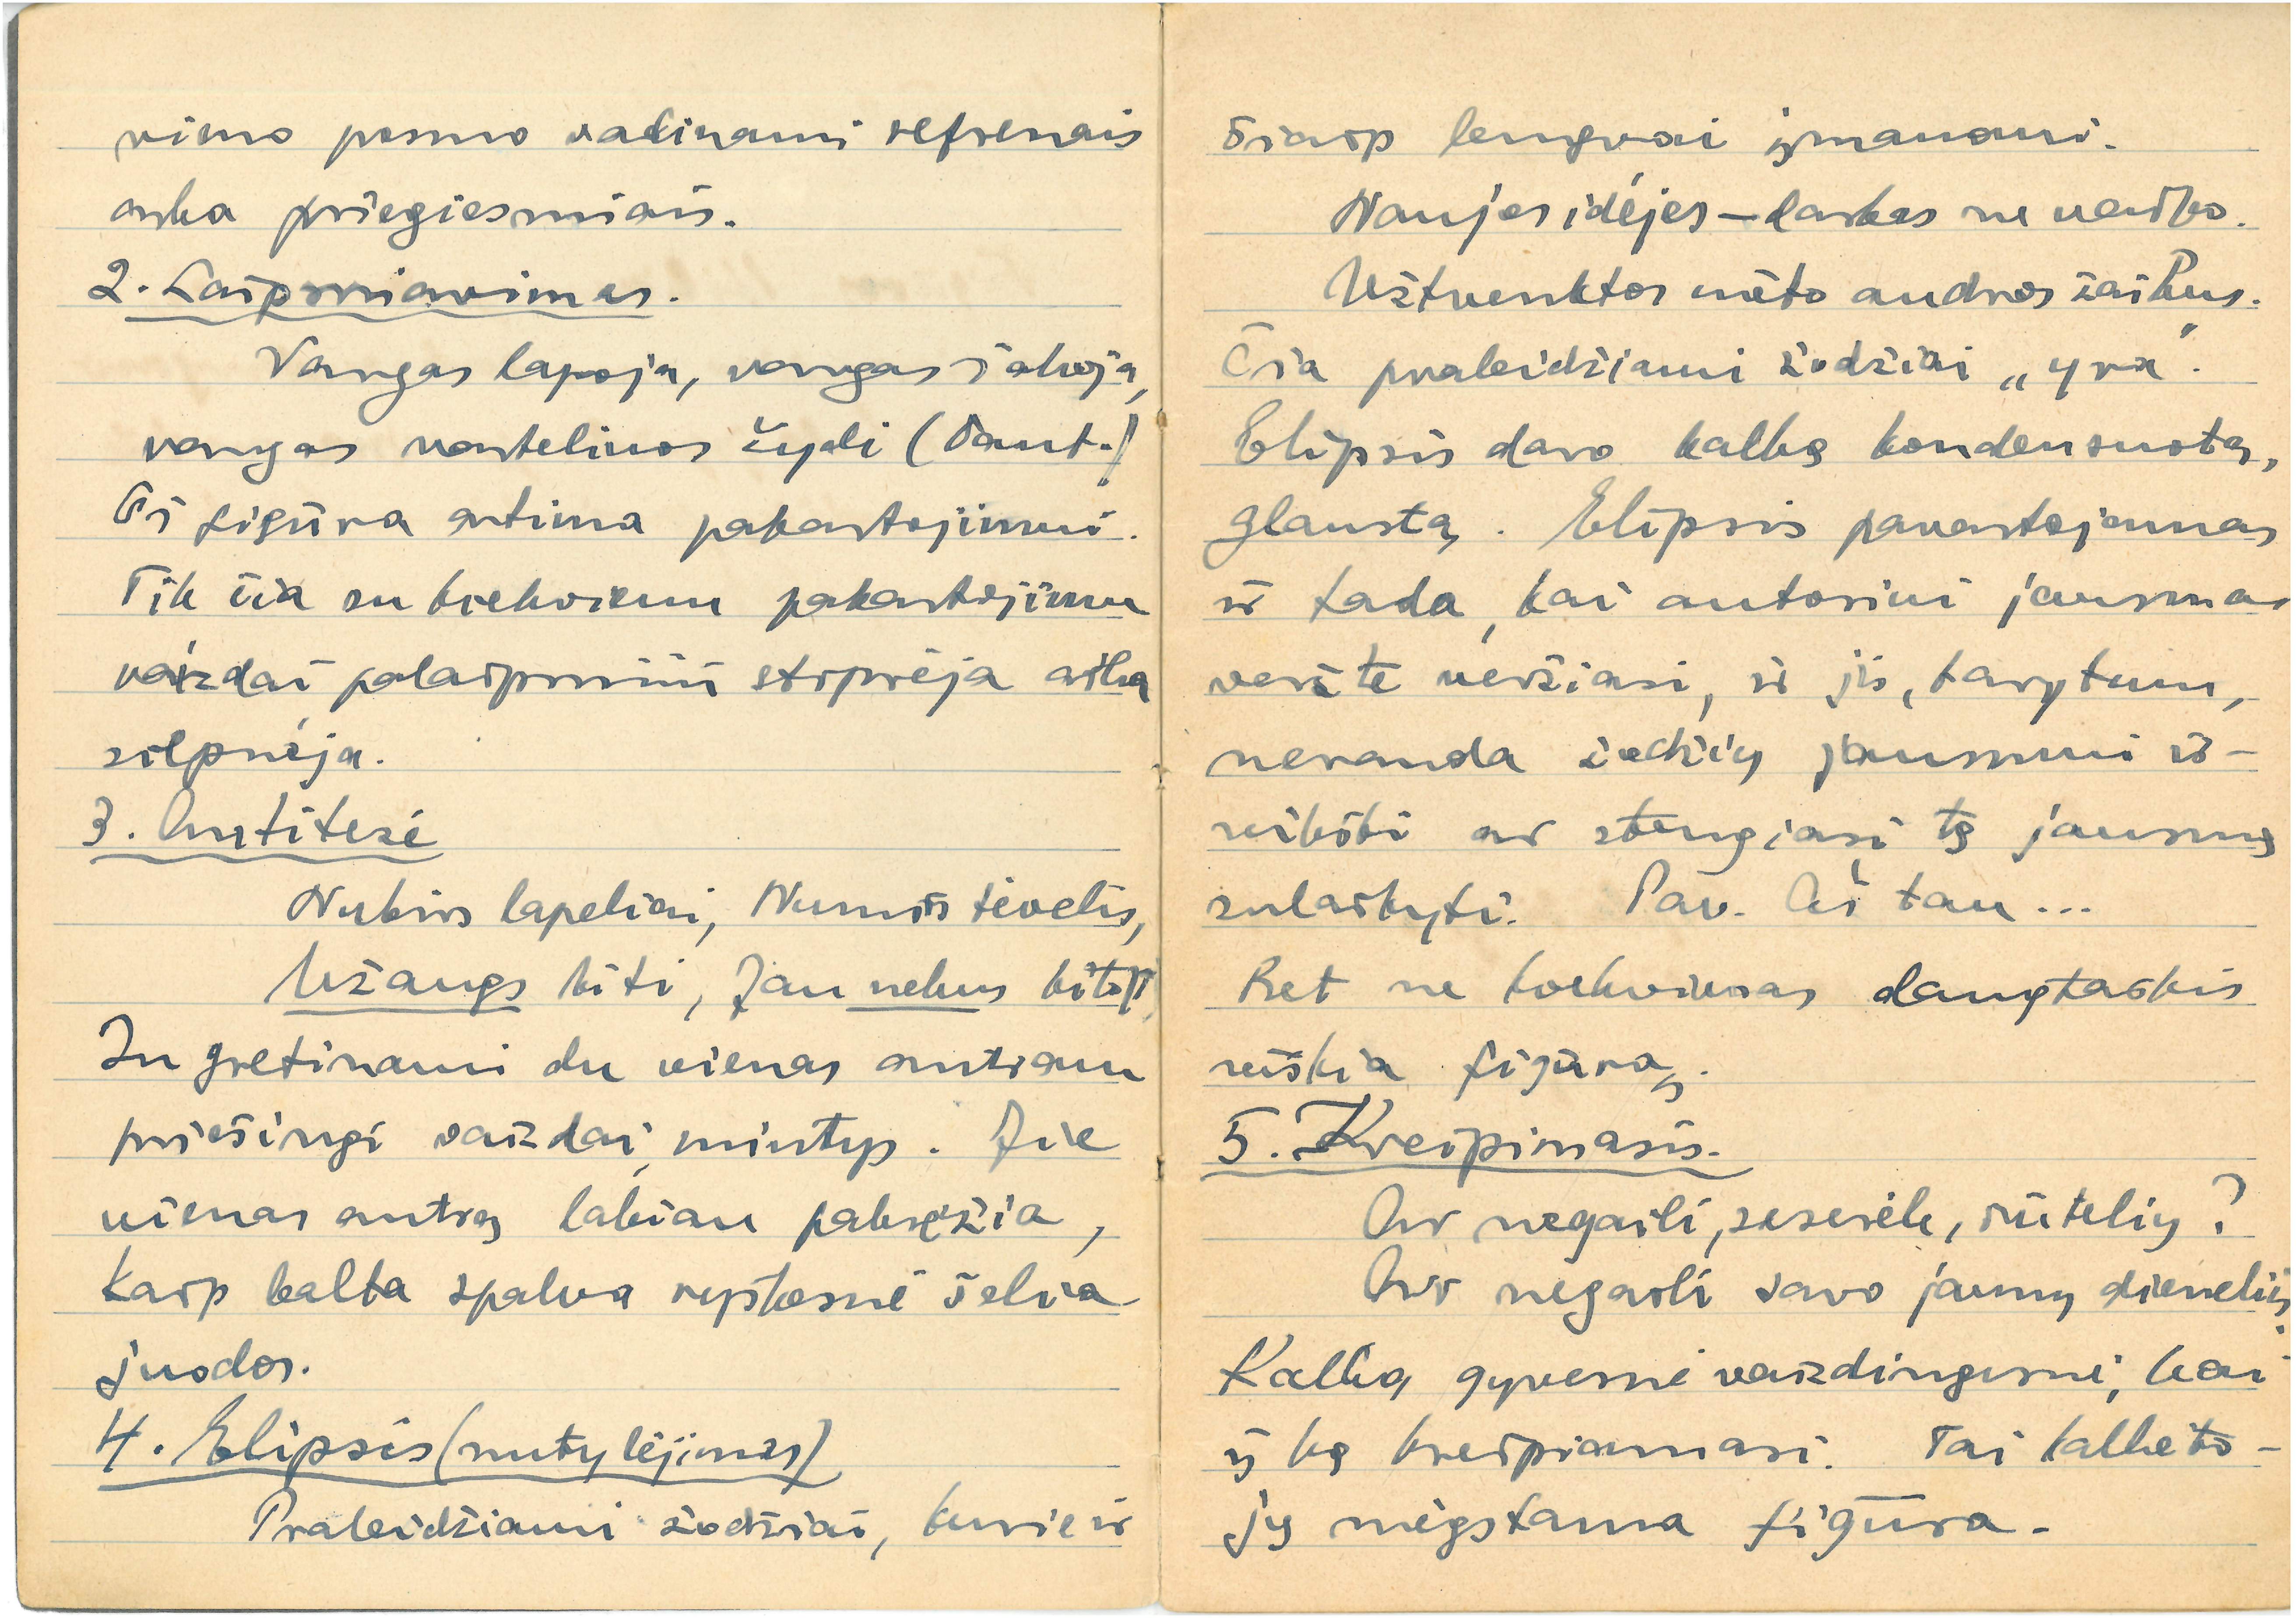 vieno posmo vadinami refrenais
arba priegiesmiais.
2. Laipsniavimas.
Vargas lapoja, vargas šakoja,
vargas varteliuos žydi (Taut.)
Ši figūra artima pakartojimui.
Tik čia su kiekvienu pakartojimu
vaizdai palaipsniui stiprėja arba
silpnėja.
3. Antitezė
Nukris lapeliai, Numirs tėvelis,
Užaugs kiti, Jau nebus kitas
Su gretinami du vienas antram
priešingi vaizdai, mintys. Jie
vienas antrą labiau pabrėžia,
kaip balta spalva ryškesnė šalia
juodos.
4. Elipsis (nutylėjimas)
Praleidžiami žodžiai, kurie ir
šiaip lengvai įmanomi.
Naujos idėjos – darbas ne vaiko.
Užtvenktos mėto audros žaibus.
Čia praleidžiami žodžiai „yra".
Elipsis daro kalbą kondensuotą,
glaustą. Elipsis pavartojamas
ir tada, kai autoriui jausmas
veržte veržiasi, ir jis, tarytum,
neranda žodžių jausmui iš-
reikšti ar stengiasi tą jausmą
sulaikyti. Pav. Aš tau...
Bet ne kiekvienas daugtaškis
reiškia figūrą.
5. Kreipimasis.
Ar negaili, seserėle, rūtelių?
Ar negaili savo jaunų dienelių?
Kalba gyvesnė vaizdingesnė, kai
į ką kreipiamasi. Tai kalbėto-
jų mėgstama figūra.